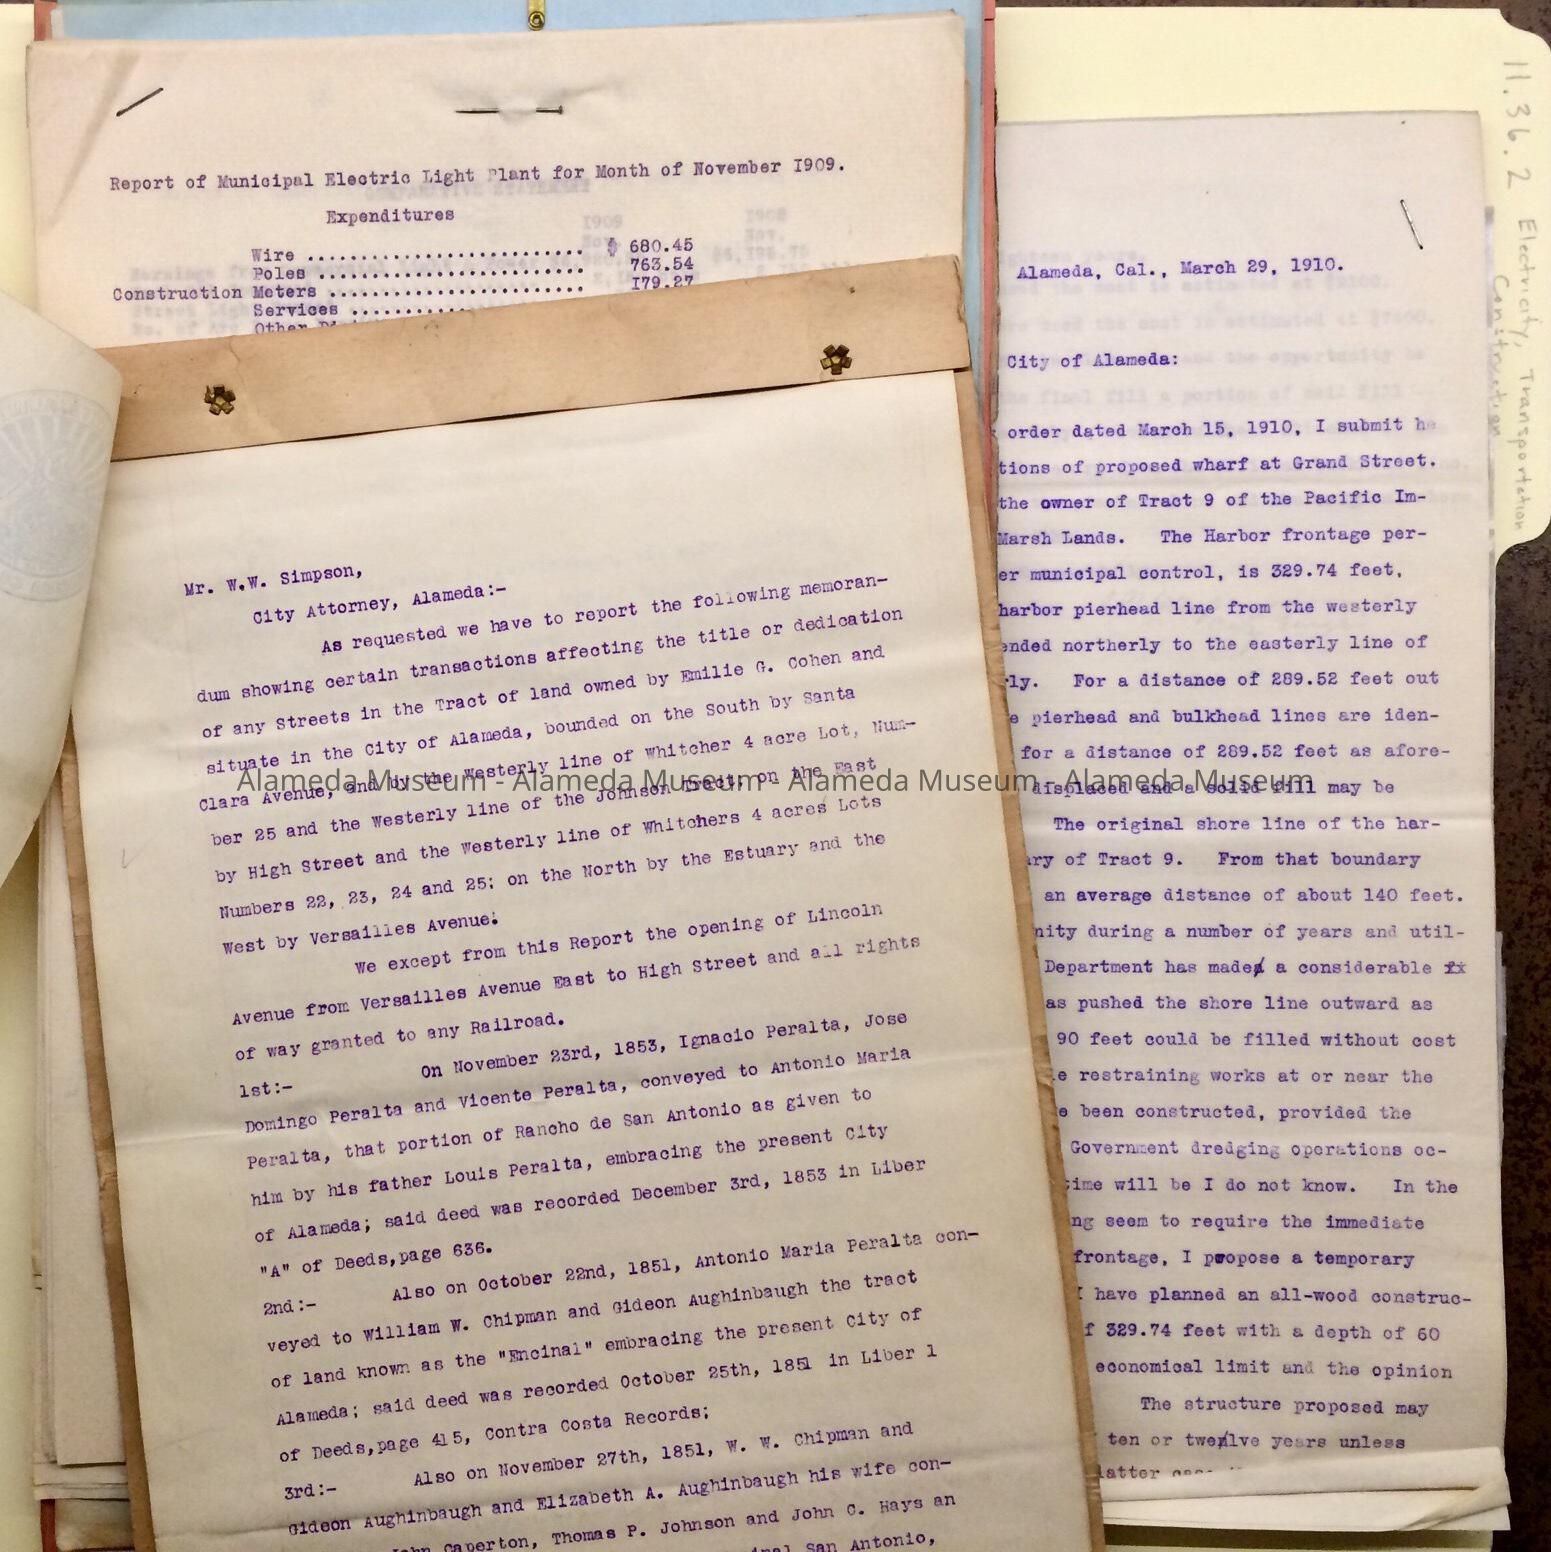 Report of Municipal Electric Light Plant for Month of November 1909.
Expenditures
Wire .......................... $ 680.45
Poles ......................... 763.54
Construction Meters ........................ 179.27
Services ............
Other
Mr. W.W. Simpson,
City Attorney, Alameda:-
As requested we have to report the following memoran-
dum showing certain transactions affecting the title or dedication
of any Streets in the Tract of land owned by Emilie G. Cohen and
situate in the City of Alameda, bounded on the South by Santa
Clara Avenue, and by the Westerly line of Whitcher 4 acre Lot, Num-
ber 25 and the Westerly line of the Johnson Tract; on the East
by High Street and the Westerly line of Whitchers 4 acres Lots
Numbers 22, 23, 24 and 25; on the North by the Estuary and the
West by Versailles Avenue:
We except from this Report the opening of Lincoln
Avenue from Versailles Avenue East to High Street and all rights
of way granted to any Railroad.
1st:- On November 23rd, 1853, Ignacio Peralta, Jose
Domingo Peralta and Vicente Peralta, conveyed to Antonio Maria
Peralta, that portion of Rancho de San Antonio as given to
him by his father Louis Peralta, embracing the present City
of Alameda; said deed was recorded December 3rd, 1853 in Liber
"A" of Deeds,page 636.
2nd:- Also on October 22nd, 1851, Antonio Maria Peralta con-
veyed to William W. Chipman and Gideon Aughinbaugh the tract
of land known as the "Encinal" embracing the present City of
Alameda; said deed was recorded October 25th, 1851 in Liber 1
of Deeds,page 415, Contra Costa Records;
3rd:- Also on November 27th, 1851, W. W. Chipman and
Gideon Aughinbaugh and Elizabeth A. Aughinbaugh his wife con-
John Caperton, Thomas P. Johnson and John C. Hays an
San Antonio,
Alameda, Cal., March 29, 1910.
City of Alameda:
order dated March 15, 1910, I submit he
tions of proposed wharf at Grand Street.
the owner of Tract 9 of the Pacific Im-
Marsh Lands. The Harbor frontage per-
er municipal control, is 329.74 feet,
harbor pierhead line from the westerly
ended northerly to the easterly line of
rly. For a distance of 289.52 feet out
e pierhead and bulkhead lines are iden-
for a distance of 289.52 feet as afore-
displaced and a solid fill may be
The original shore line of the har-
ary of Tract 9. From that boundary
an average distance of about 140 feet.
nity during a number of years and util-
Department has made a considerable fx
as pushed the shore line outward as
90 feet could be filled without cost
e restraining works at or near the
e been constructed, provided the
Government dredging operations oc-
time will be I do not know. In the
ng seem to require the immediate
frontage, I propose a temporary
I have planned an all-wood construc-
f 329.74 feet with a depth of 60
economical limit and the opinion
The structure proposed may
ten or twelve years unless
latter
11.36.2 Electricity, Transportation
Construction
Alameda Museum - Alameda Museum - Alameda Museum - Alameda Museum